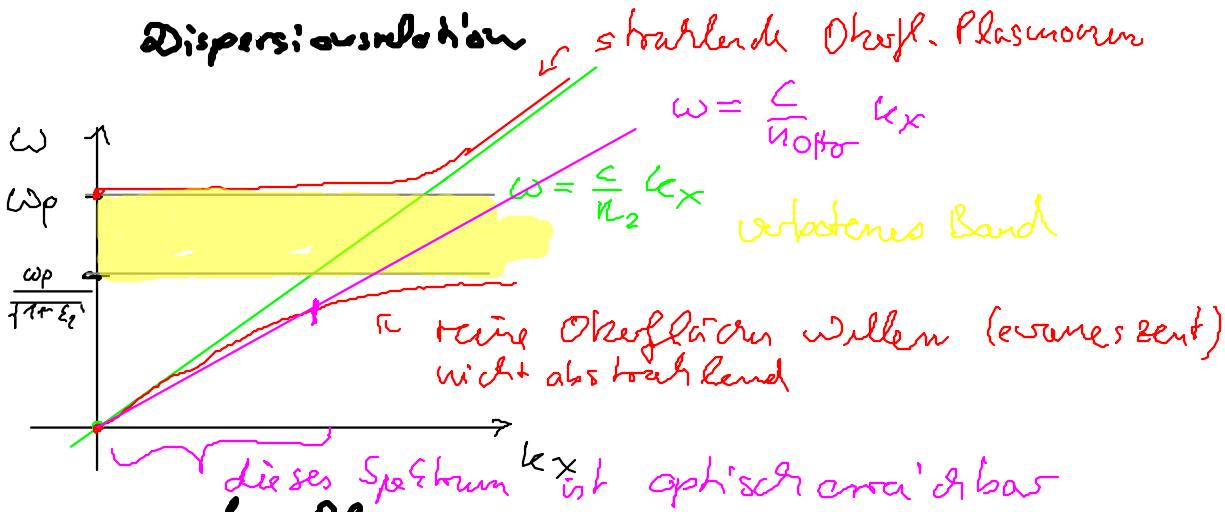 Dispersionsrelation
strahlende Oberfl. Plasmonen
ω = c/n_Opto k_x
ω
ω_p
ω = c/n_2 k_x
verbotenes Band
ω_p/√(1+ε_2)
reine Oberflächen Wellen (evaneszent)
nicht abstrahlend
k_x
dieses Spektrum ist optisch erreichbar